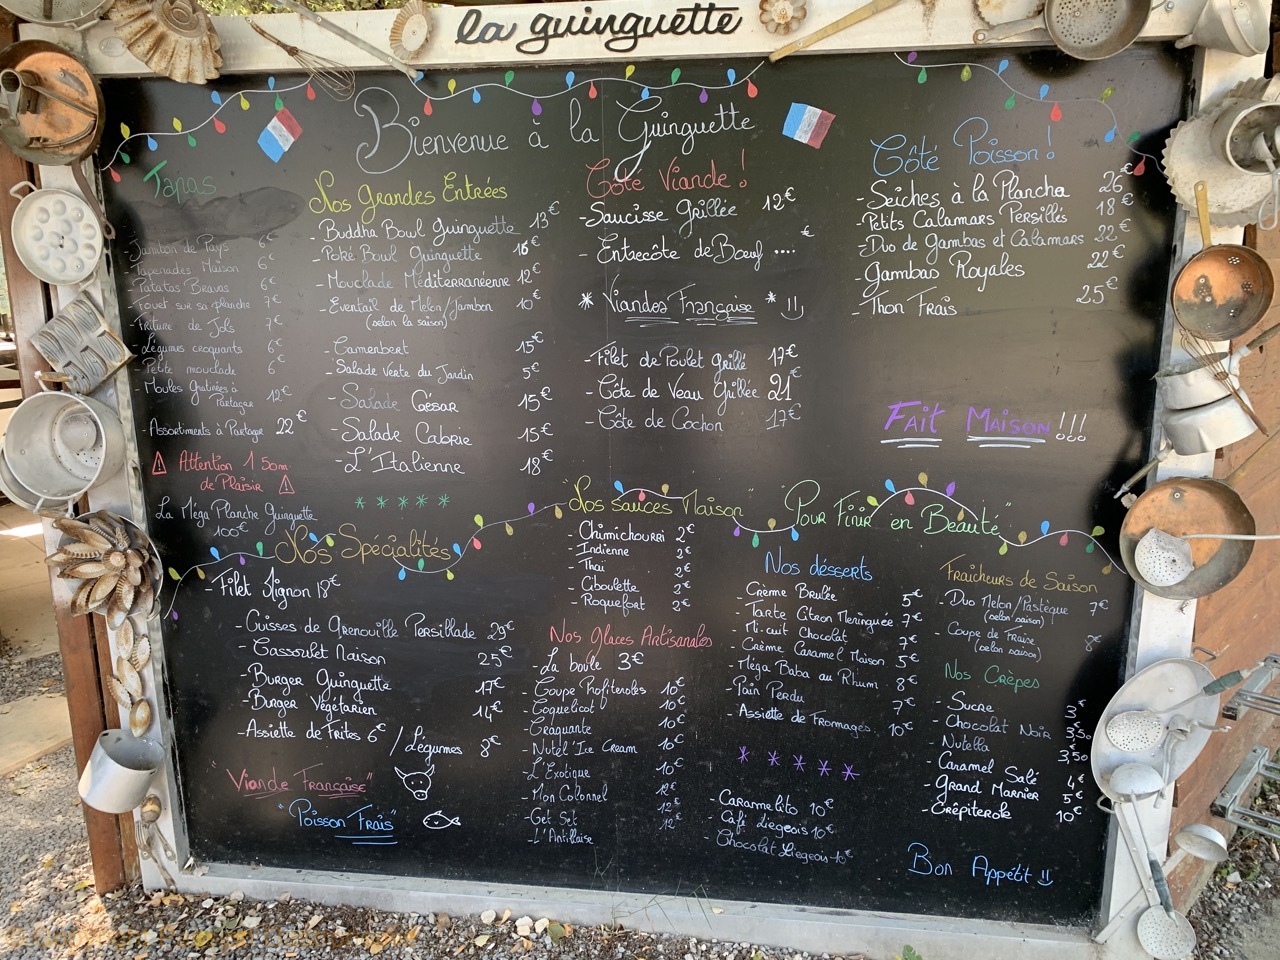 la guinguette
Bienvenue à la Guinguette
Tapas
- Jambon de Pays 6€
- Tapenades Maison 6€
- Patatas Bravas 6€
- Fouet sur sa planche 7€
- Friture de Jols 7€
- Légumes croquants 6€
- Petite mouclade 6€
- Moules Gratinées à
Partager 12€
- Assortiments à Partager 22€
⚠ Attention 1 50m
de Plaisir ⚠
La Méga Planche Guinguette
100€
Nos Grandes Entrées
- Buddha Bowl Guinguette 13€
- Poké Bowl Guinguette 16€
- Mouclade Méditerranéenne 12€
- Eventail de Melon/Jambon 10€
(selon la saison)
- Camembert 15€
- Salade verte du Jardin 5€
- Salade César 15€
- Salade Cabrie 15€
- L'Italienne 18€
* * * * *
Côté Viande !
- Saucisse Grillée 12€
- Entrecôte de Bœuf .... €
* Viandes Française * :)
- Filet de Poulet Grillé 17€
- Côte de Veau Grillée 21€
- Côte de Cochon 17€
Côté Poisson !
- Seiches à la Plancha 26€
- Petits Calamars Persillés 18€
- Duo de Gambas et Calamars 22€
- Gambas Royales 22€
- Thon Frais 25€
Fait Maison !!!
Nos Spécialités
- Filet Mignon 18€
- Cuisses de Grenouille Persillade 29€
- Cassoulet Maison 25€
- Burger Guinguette 17€
- Burger Végétarien 14€
- Assiette de Frites 6€ / Légumes 8€
"Viande Française"
"Poisson Frais"
"Nos sauces Maison"
- Chimichourri 2€
- Indienne 2€
- Thaï 2€
- Ciboulette 2€
- Roquefort 2€
Nos Glaces Artisanales
- La boule 3€
- Coupe Profiteroles 10€
- Coquelicot 10€
- Craquante 10€
- Nutel'Ice Cream 10€
- L'Exotique 10€
- Mon Colonnel 12€
- Get Set 12€
- L'Antillaise 12€
"Pour Finir en Beauté"
Nos désserts
- Crème Brulée 5€
- Tarte Citron Meringuée 7€
- Mi-cuit Chocolat 7€
- Crème Caramel Maison 5€
- Méga Baba au Rhum 8€
- Pain Perdu 7€
- Assiette de Fromages. 10€
* * * * *
- Caramelito 10€
- Café Liegeois 10€
- Chocolat Liegeois 10€
Fraicheurs de Saison
- Duo Melon/Pastèque 7€
(selon saison)
- Coupe de Fraise 8€
(selon saison)
Nos Crêpes
- Sucre 3€
- Chocolat Noir 3€50
- Nutella 3€50
- Caramel Salé 4€
- Grand Marnier 5€
- Crêpiterole 10€
Bon Appétit :)